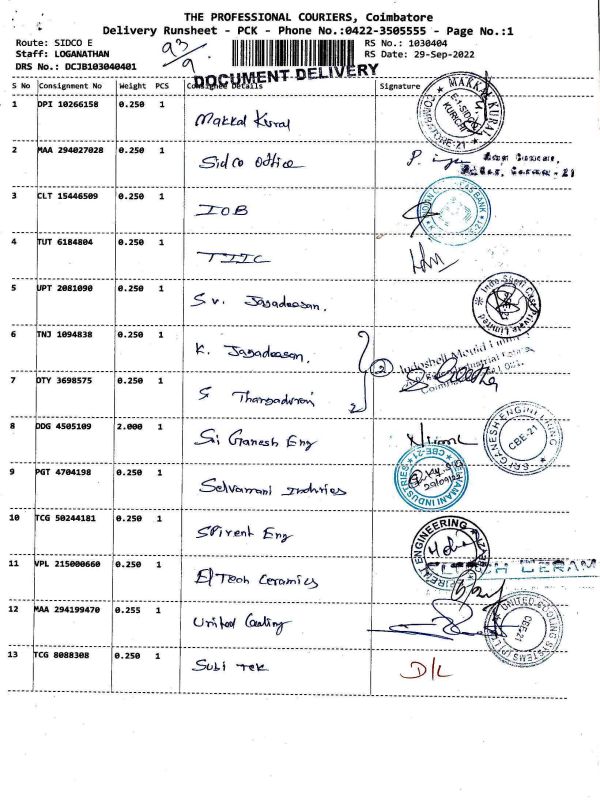 THE PROFESSIONAL COURIERS, Coimbatore
Delivery Runsheet - PCK - Phone No.:0422-3505555 - Page No.:1
Route: SIDCO E
Staff: LOGANATHAN
DRS No.: DCJB103040401
93/9
RS No.: 1030404
RS Date: 29-Sep-2022
DOCUMENT DELIVERY
S No Consignment No Weight PCS Consignee Details Signature
1 DPI 10266158 0.250 1 Makkal Kural
MAKKAL KURAL
E-1-SIDCO
KURICHI
2 MAA 294027028 0.250 1 Sidco Office
3 CLT 15446509 0.250 1 IOB
4 TUT 6184804 0.250 1 TIIC
5 UPT 2081090 0.250 1 S.V. Jagadeesan.
Private Limited
6 TNJ 1094838 0.250 1 K. Jagadeesan.
2
Indoshell Mould Limited
7 OTY 3698575 0.250 1 S Thangadurai
8 DDG 4505109 2.000 1 Sri Ganesh Eng
SRI GANESH ENGINEERING
CBE-21
9 PGT 4704198 0.250 1 Selvamani Indnries
SELVAMANI INDUSTRIES
CBE-21
10 TCG 50244181 0.250 1 SPirent Eng
ENGINEERING
11 VPL 215000660 0.250 1 El Tech Ceramics
12 MAA 294199470 0.255 1 United Cooling
UNITED COOLING SYSTEMS (P) LTD
CBE-21
13 TCG 8088308 0.250 1 Subi Tek D/L